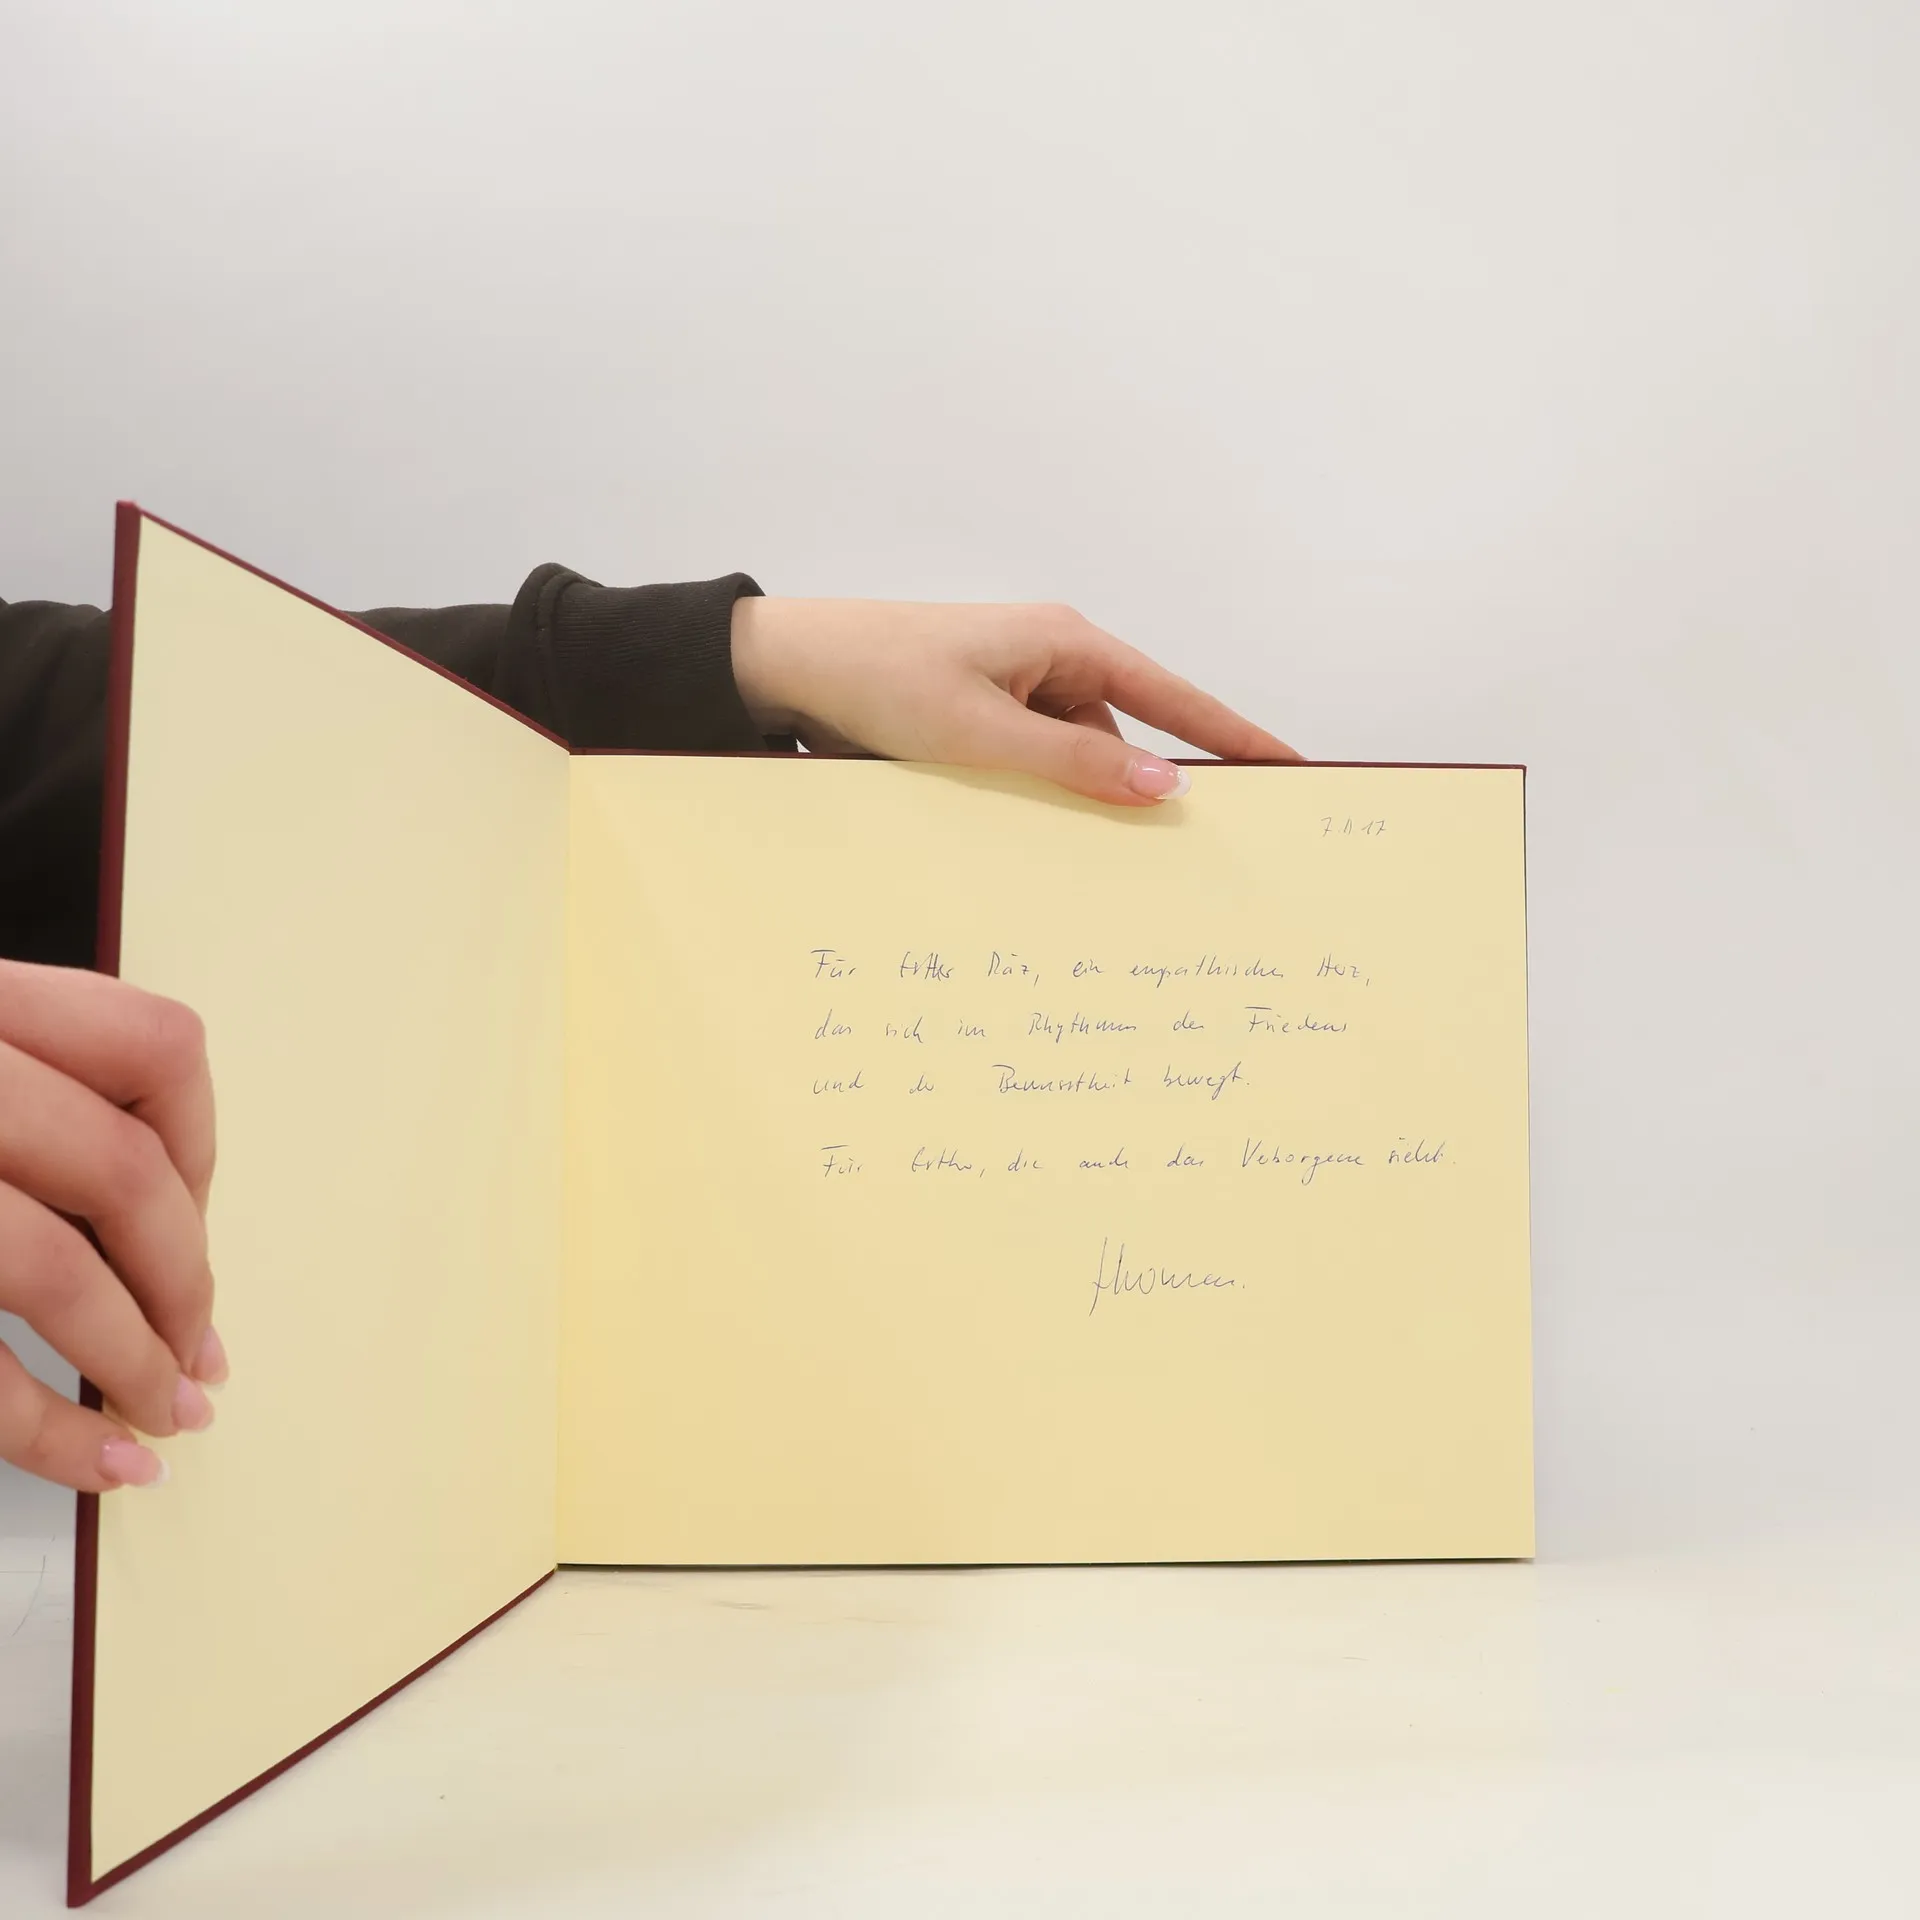 7.11.17
Für Esther Räz, ein empathisches Herz,
das sich im Rhythmus des Friedens
und der Bewusstheit bewegt.
Für Esther, die auch das Verborgene sieht.
Thomas.